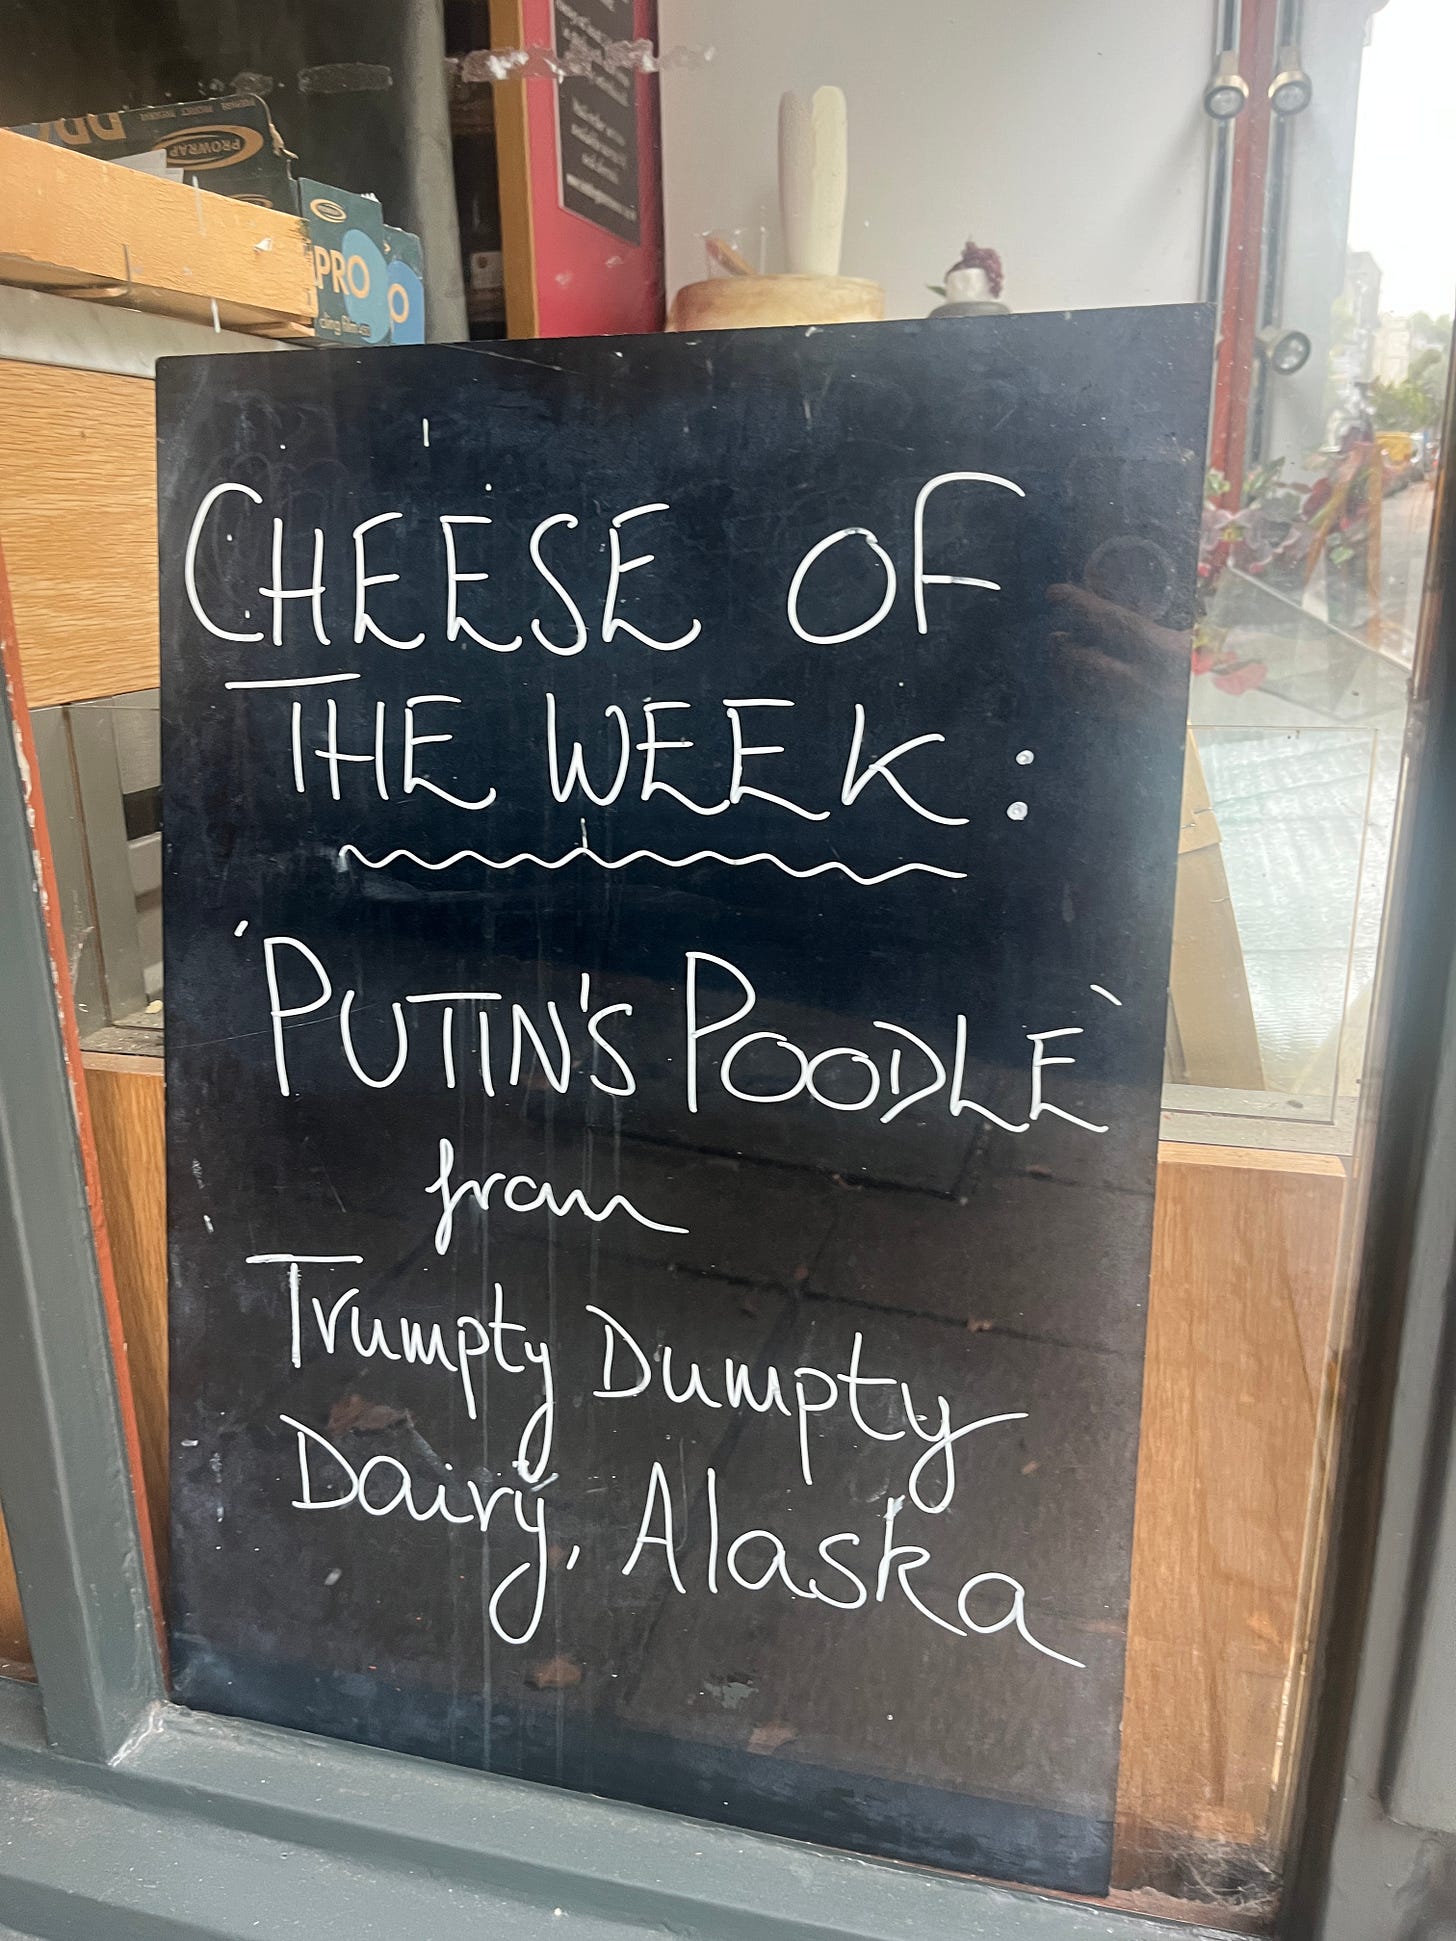 PROWRAP
PRO
cling film
CHEESE OF
THE WEEK:
'PUTIN'S POODLE'
from
Trumpty Dumpty
Dairy, Alaska